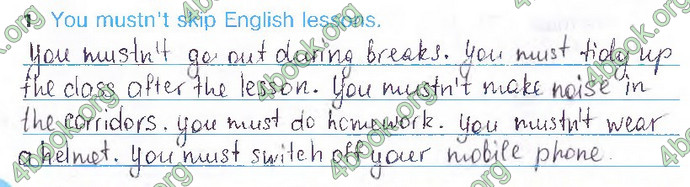 1 You mustn't skip English lessons.
You mustn't go out during breaks. You must tidy up
the class after the lesson. You mustn't make noise in
the corridors. You must do homework. You mustn't wear
a helmet. You must switch off your mobile phone.
4book.org